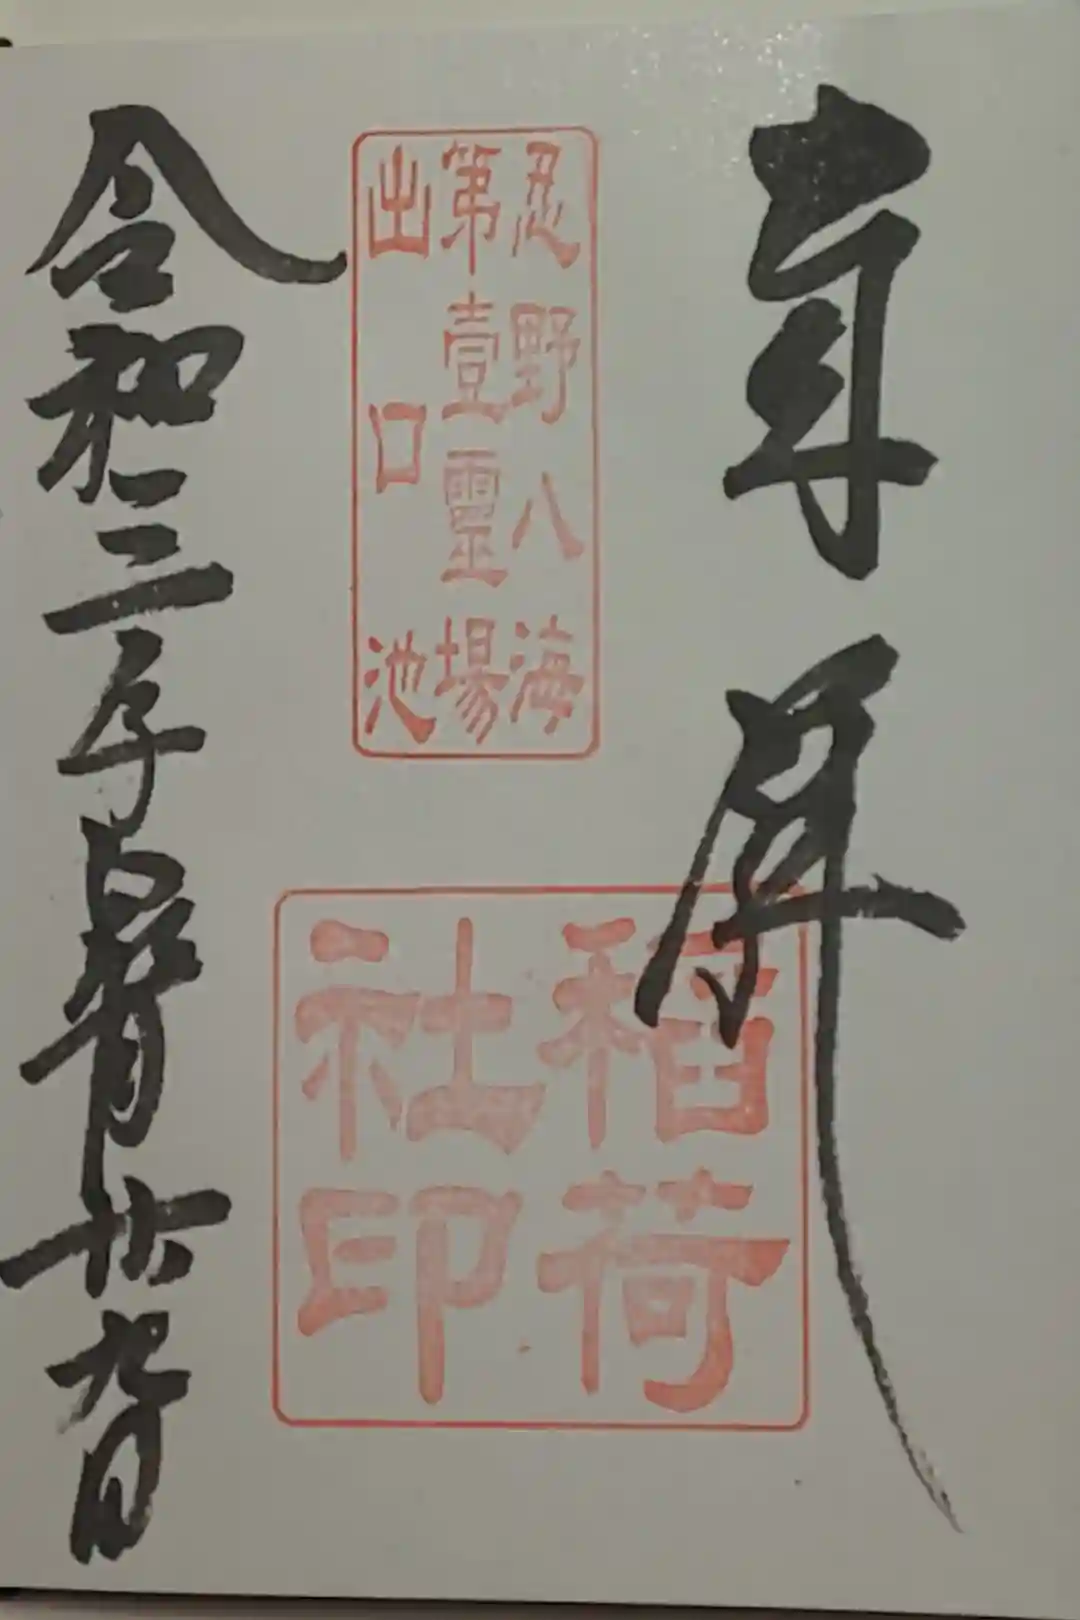 奉拝
忍野八海
第壹靈場
出口池
稲荷
社印
令和二年
廿九日